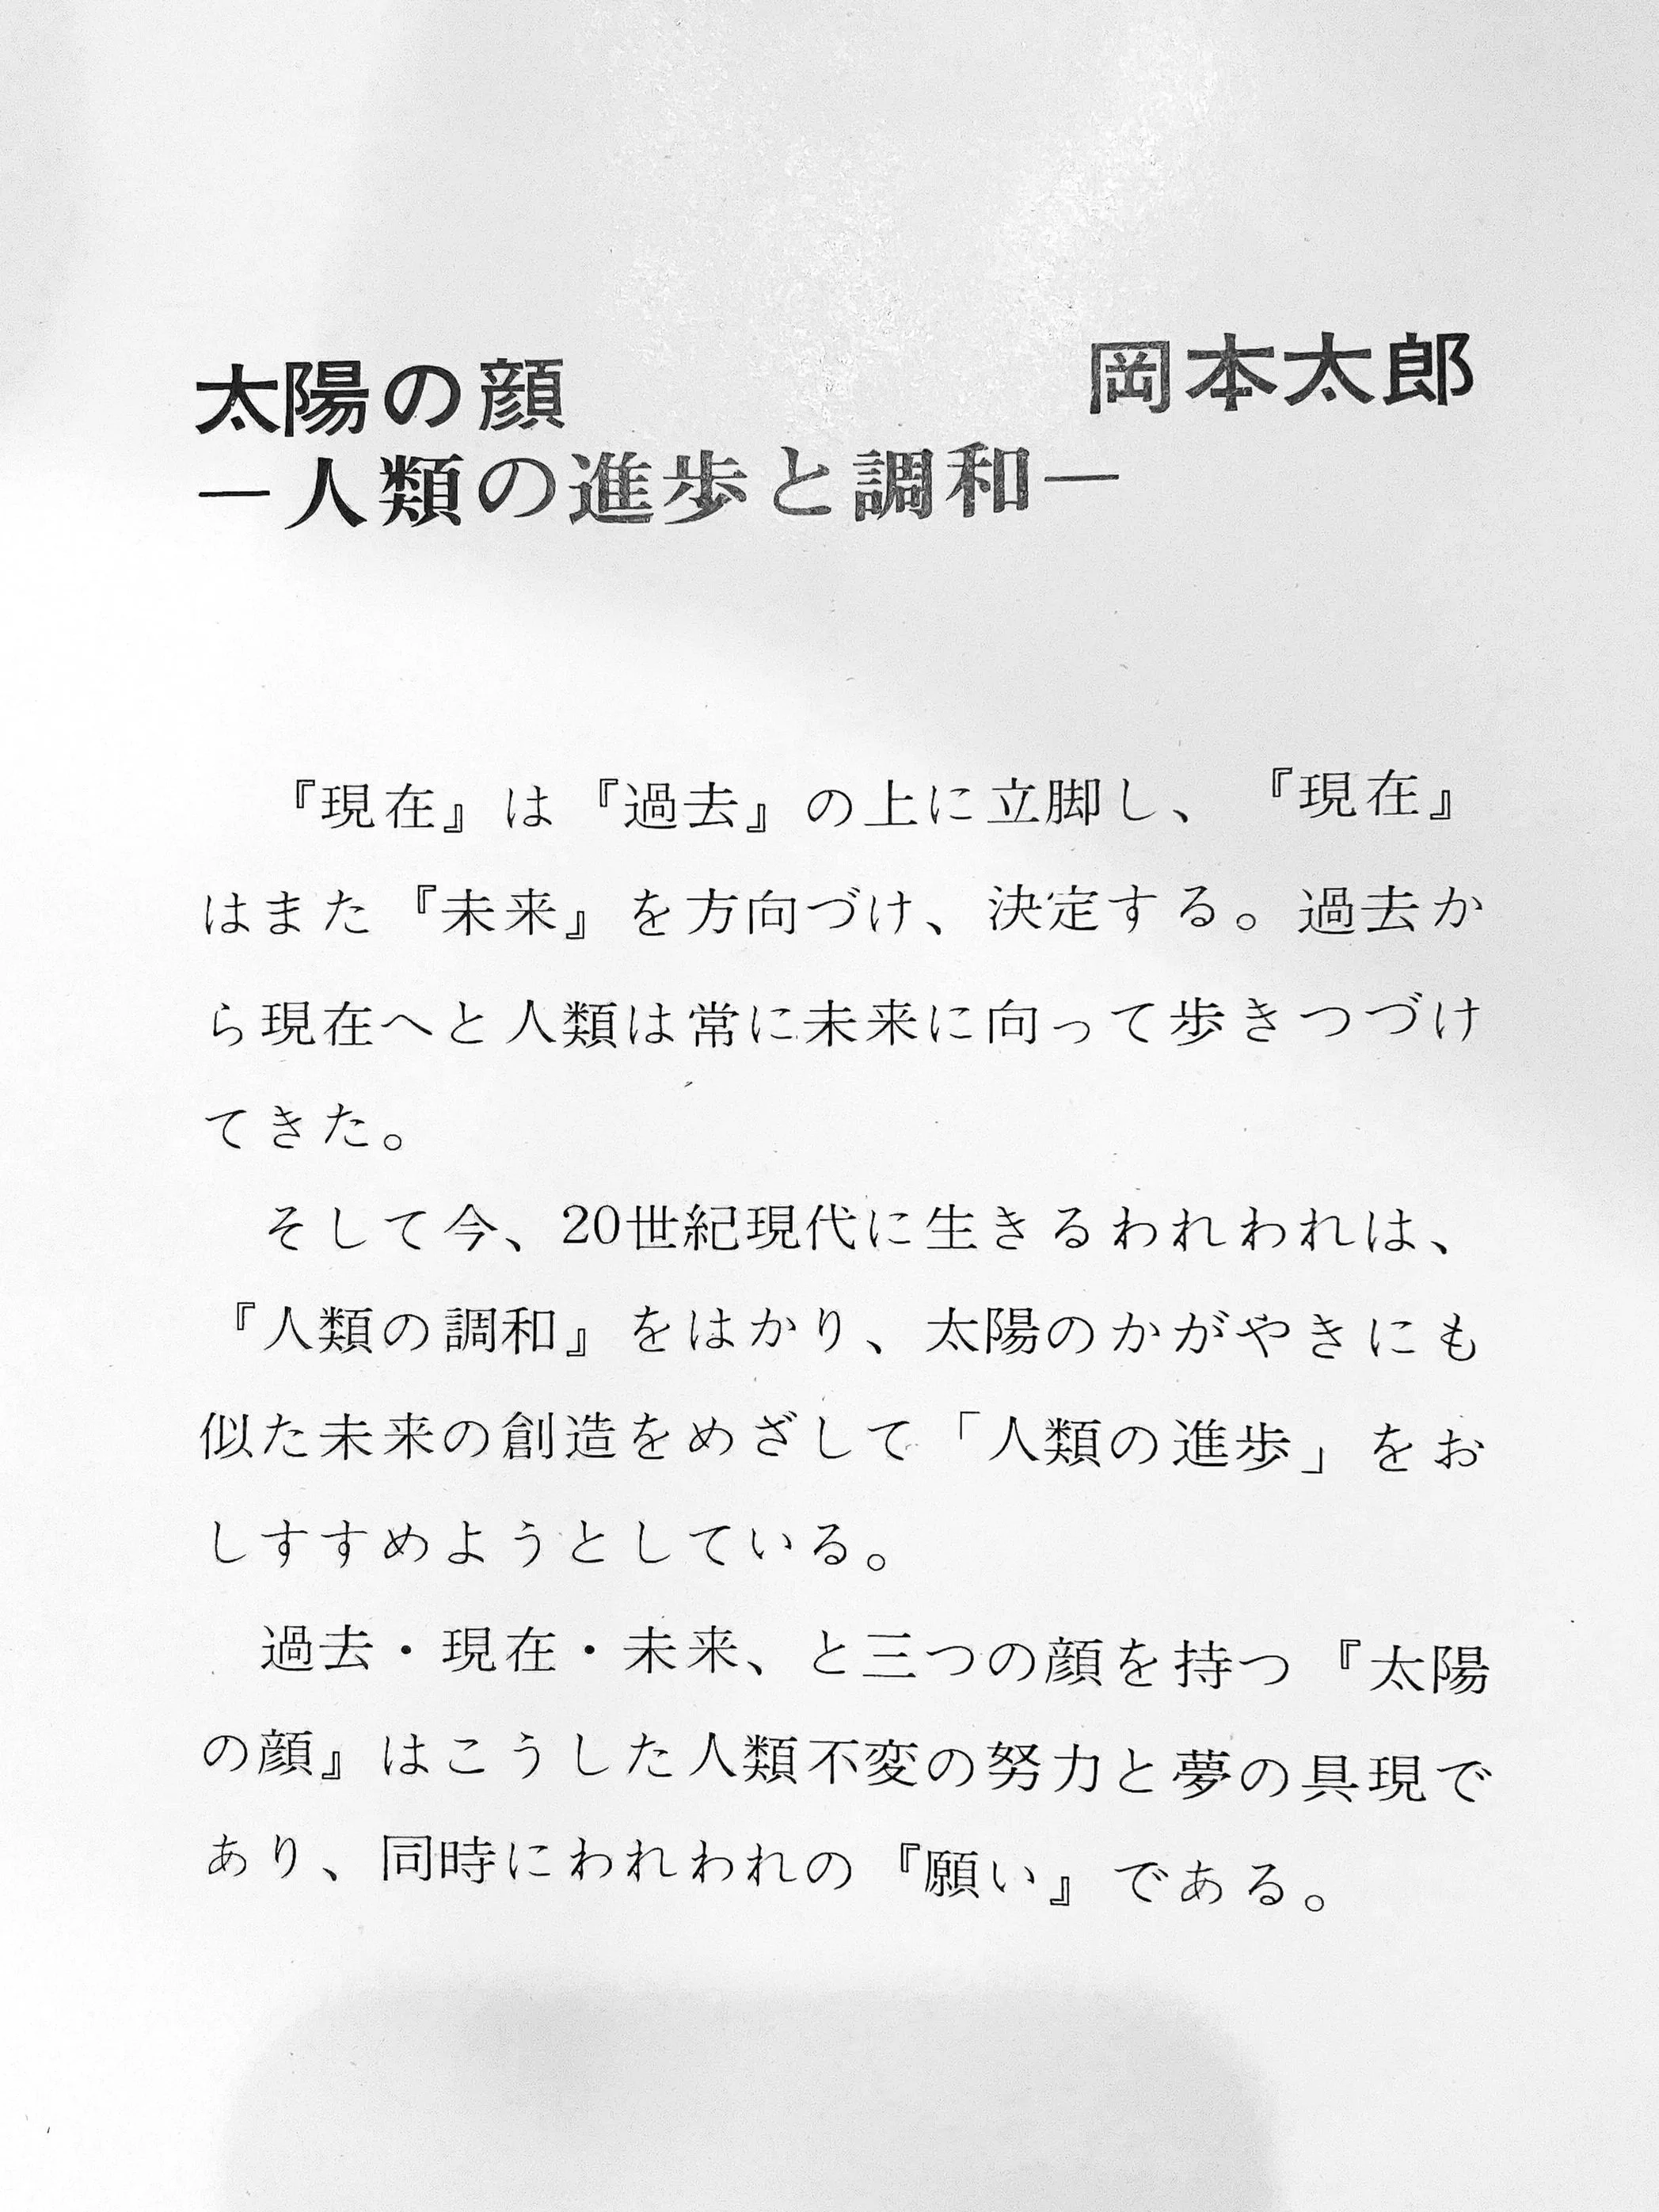 太陽の顔　岡本太郎
―人類の進歩と調和―
『現在』は『過去』の上に立脚し、『現在』
はまた『未来』を方向づけ、決定する。過去か
ら現在へと人類は常に未来に向って歩きつづけ
てきた。
そして今、20世紀現代に生きるわれわれは、
『人類の調和』をはかり、太陽のかがやきにも
似た未来の創造をめざして「人類の進歩」をお
しすすめようとしている。
過去・現在・未来、と三つの顔を持つ『太陽
の顔』はこうした人類不変の努力と夢の具現で
あり、同時にわれわれの『願い』である。